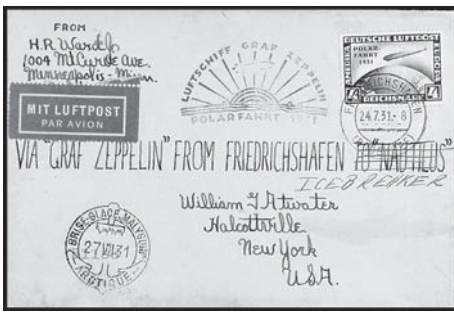 FROM
H.R. Ward Jr
1004 McCurdy Ave.
Minneapolis - Minn.
MIT LUFTPOST
PAR AVION
LUFTSCHIFF GRAF ZEPPELIN
POLARFAHRT 1931
DEUTSCHE LUFTPOST
POLAR-
FAHRT
1931
EUROPA
AMERIKA
4
REICHSMARK
4
FRIEDRICHSHAFEN
24.7.31.-8
VIA "GRAF ZEPPELIN" FROM FRIEDRICHSHAFEN "NAUTILUS"
ICEBREAKER
William J Atwater
Halcottville
New York
U.S.A.
BRISE-GLACE MALYGUIN
27 VII 31
ARCTIQUE